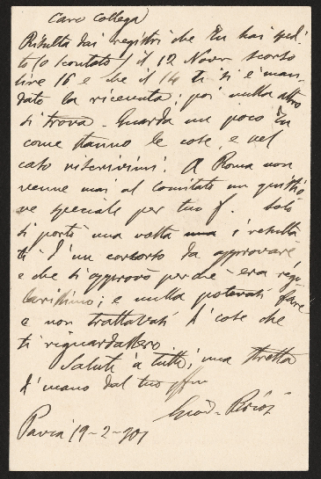 Caro Collega
Risulta dai registri che tu hai spedi
to (o scontato) il 12 Novr scorso
lire 16 e che il 14 ti si è man
dato la ricevuta; poi nulla altro
si trova. Guarda un poco tu
come stanno le cose, e nel
caso riscrivimi. A Roma non
venne mai al Comitato un
speciale per tuo f. Solo
si portò una volta i risulta
ti d'un concorso da approvare
e che si approvò perché era rego
larissimo; e nulla potevasi fare
e non trattavasi di cose che
ti riguardassero
Saluti a tutti; una stretta
di mano dal tuo affmo
Pavia 19-2-901